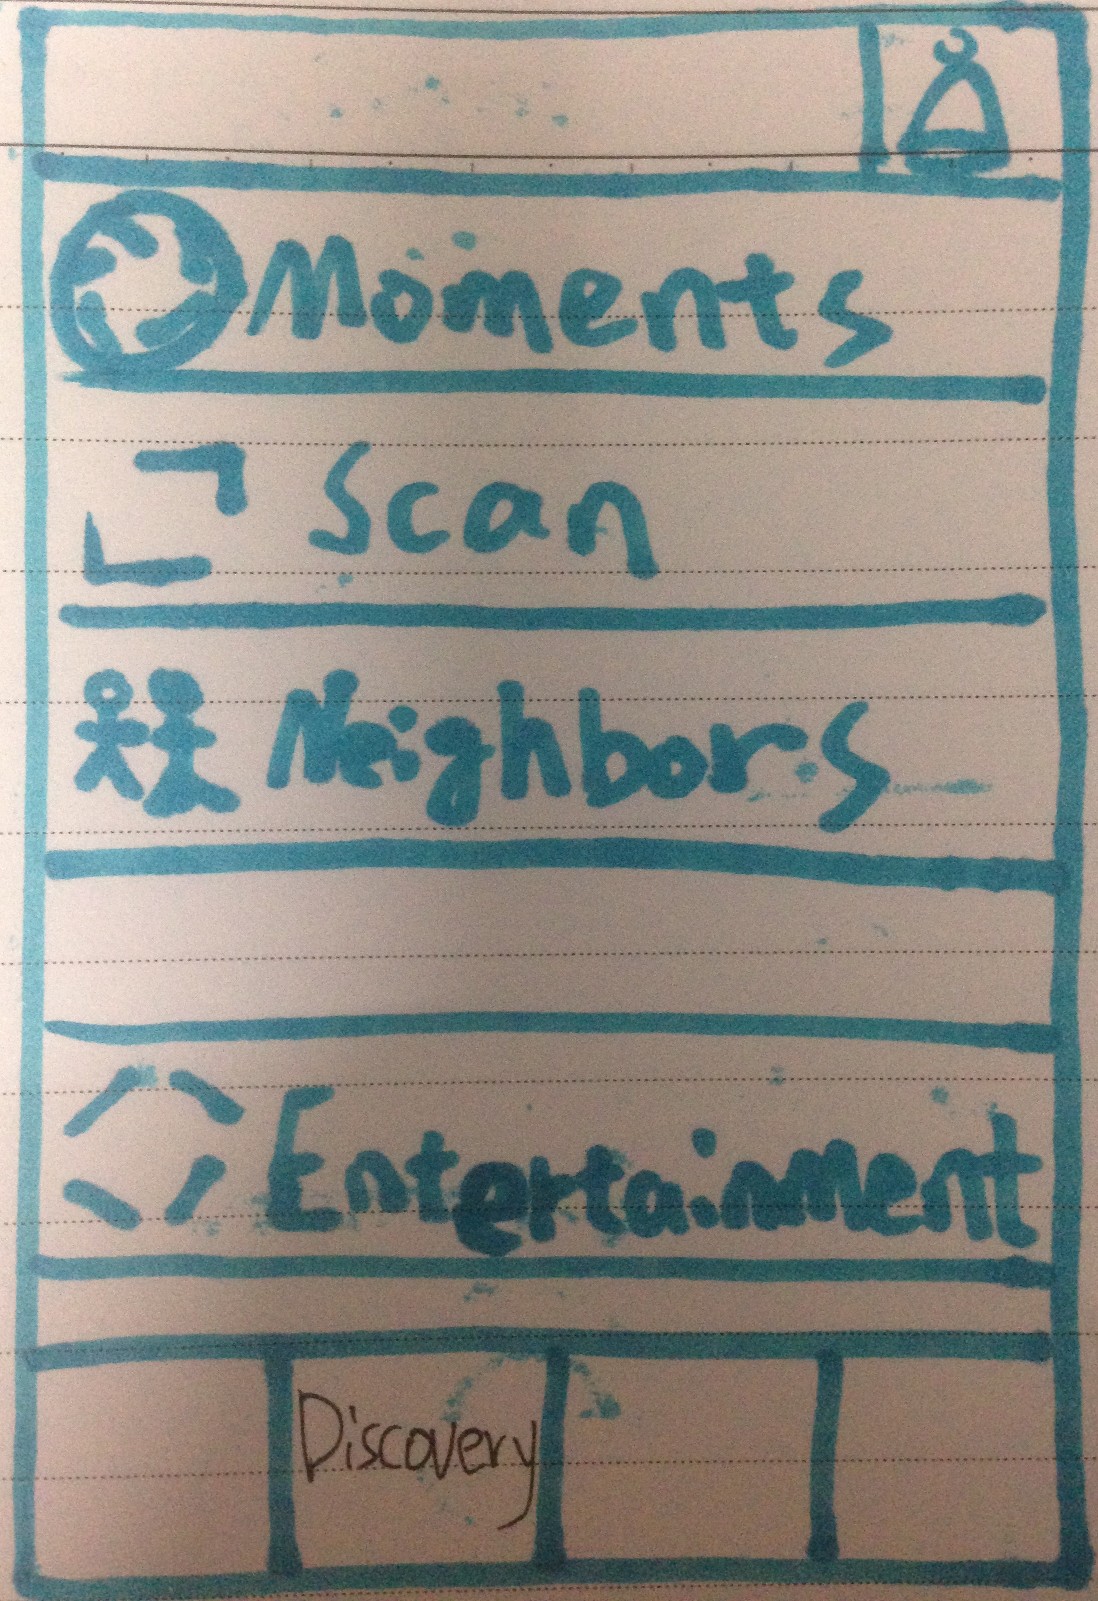 Moments
Scan
Neighbors
Entertainment
Discovery